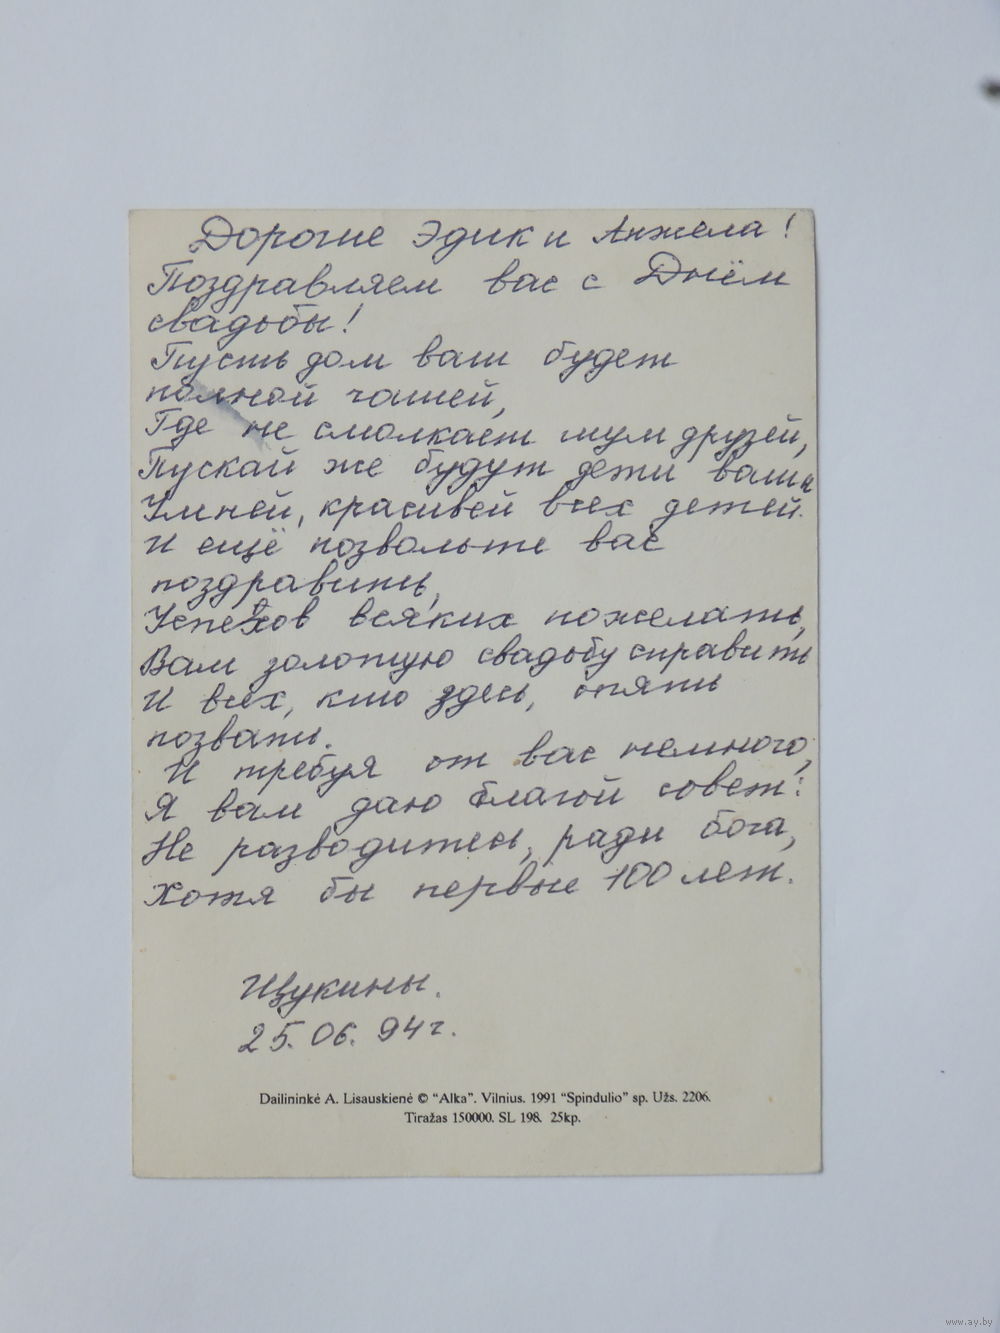 Дорогие Эдик и Анжела!
Поздравляем вас с Днём
свадьбы!
Пусть дом ваш будет
полной чашей,
Где не смолкает шум друзей,
Пускай же будут дети ваши
Умней, красивей всех детей.
И ещё позвольте вас
поздравить,
Успехов всяких пожелать,
Вам золотую свадьбу справить
И всех, кто здесь, опять
позвать.
И требуя от вас немного,
Я вам даю благой совет:
Не разводитесь, ради бога,
Хотя бы первые 100 лет.
Щукины.
25.06.94г.
Dailininkė A. Lisauskienė © “Alka”. Vilnius. 1991 “Spindulio” sp. Užs. 2206.
Tiražas 150000. SL 198. 25kp.
www.ay.by